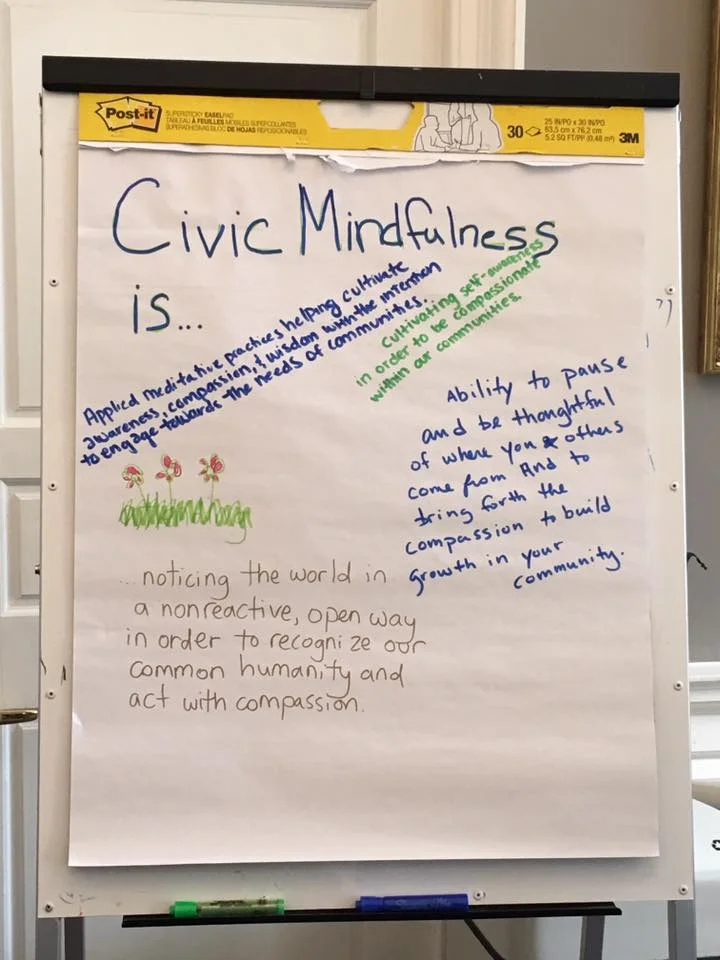 Post-it
SUPERSTICKY EASEL PAD
TABLEAU À FEUILLES MOBILES SUPERCOLLANTES
SUPERADHESIVAS BLOC DE HOJAS REPOSICIONABLES
30
25 IN/PO x 30 IN/PO
63,5 cm x 76,2 cm
5.2 SQ FT/PP (0,48 m²)
3M
Civic Mindfulness
is...
Applied meditative practices helping cultivate
awareness, compassion, & wisdom with the intention
to engage towards the needs of communities.
Cultivating self-awareness
in order to be compassionate
within our communities.
Ability to pause
and be thoughtful
of where you & others
come from And to
bring forth the
compassion to build
growth in your
community.
...noticing the world in
a nonreactive, open way
in order to recognize our
common humanity and
act with compassion.